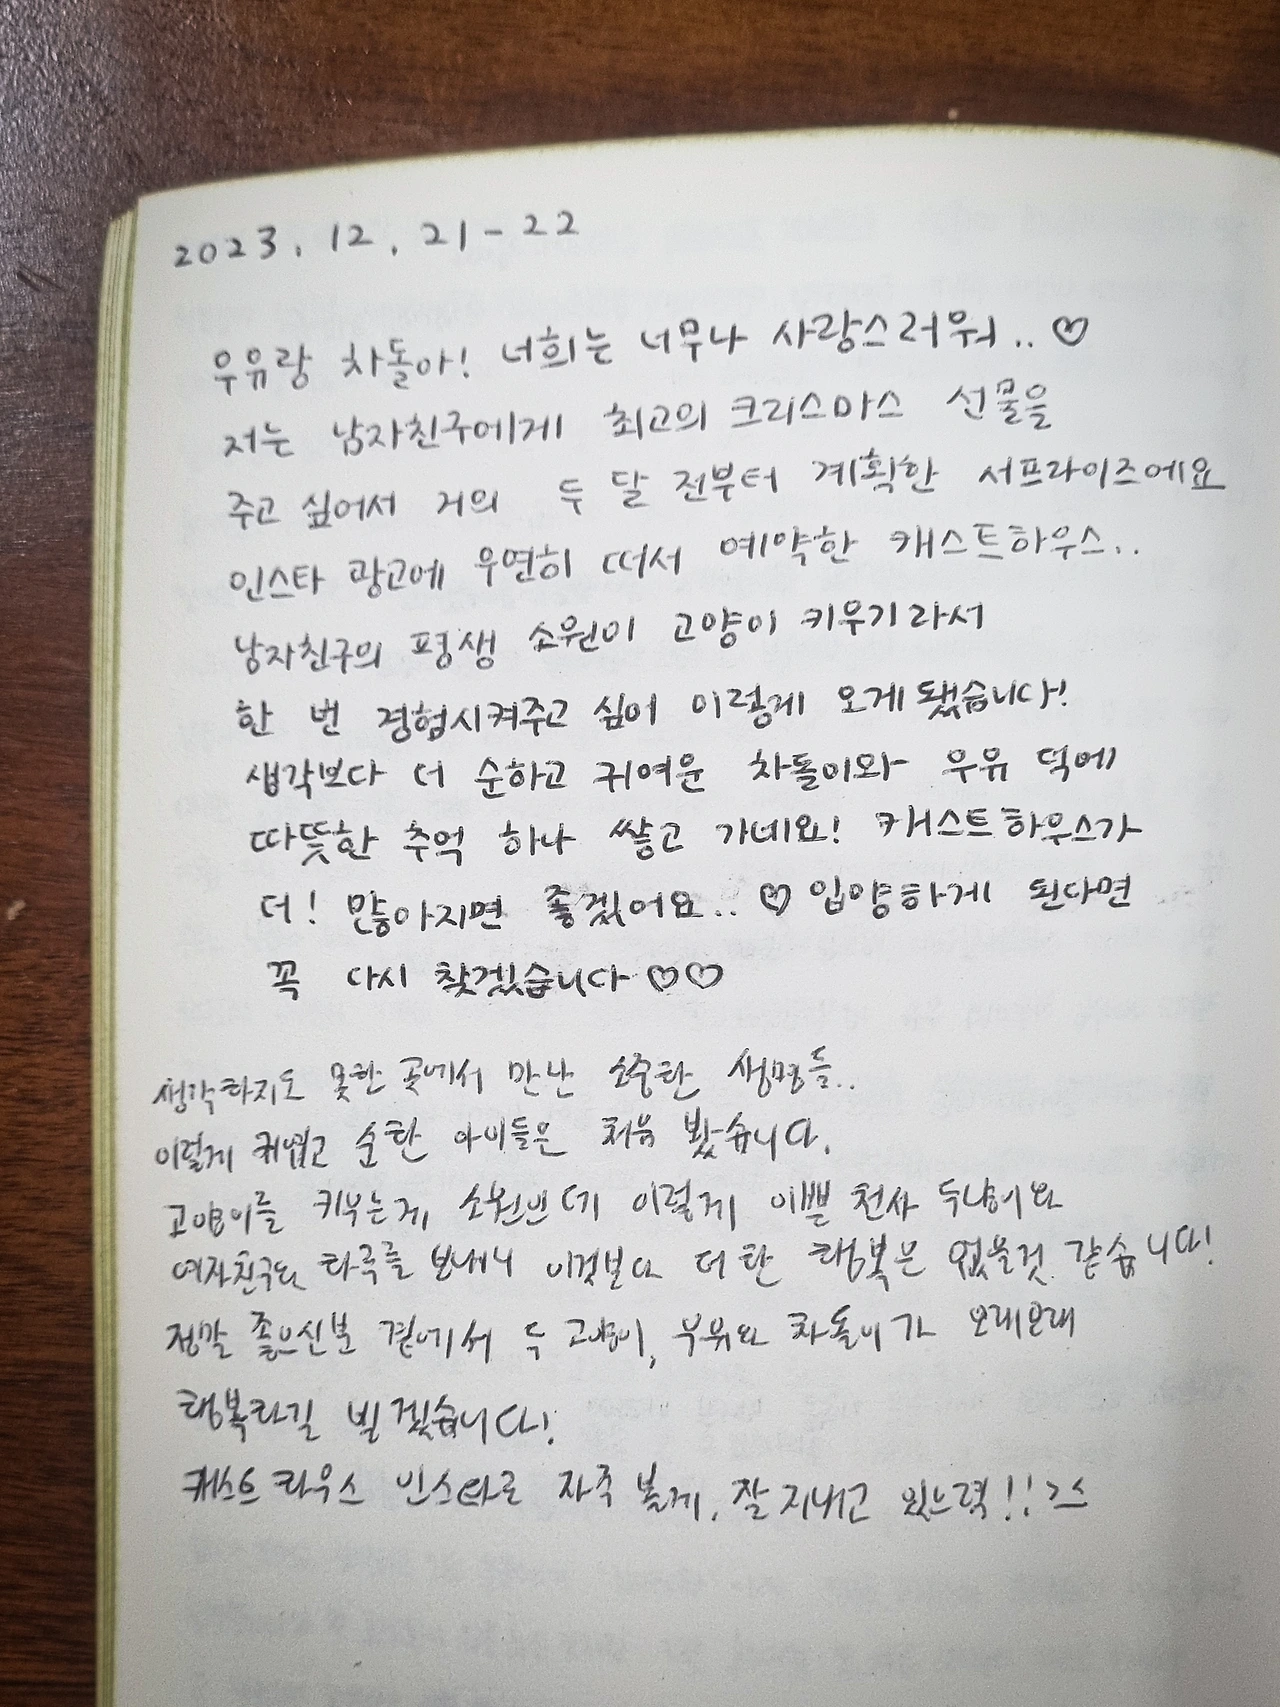 2023. 12. 21 - 22
우유랑 차돌아! 너희는 너무나 사랑스러워.. ♡
저는 남자친구에게 최고의 크리스마스 선물을
주고 싶어서 거의 두 달 전부터 계획한 서프라이즈에요
인스타 광고에 우연히 떠서 예약한 캐스트하우스..
남자친구의 평생 소원이 고양이 키우기라서
한 번 경험시켜주고 싶어 이렇게 오게됐습니다!
생각보다 더 순하고 귀여운 차돌이와 우유 덕에
따뜻한 추억 하나 쌓고 가네요! 캐스트하우스가
더! 많아지면 좋겠어요.. ♡ 입양하게 된다면
꼭 다시 찾겠습니다 ♡♡
생각하지도 못한 곳에서 만난 소중한 생명들..
이렇게 귀엽고 순한 아이들은 처음 봤습니다.
고양이를 키우는게 소원인데 이렇게 이쁜 천사 두냥이와
여자친구와 하루를 보내니 이것보다 더 한 행복은 없을것 같습니다!
정말 좋으신분 곁에서 두 고양이, 우유와 차돌이가 오래오래
행복하길 빌겠습니다!
캐스트하우스 인스타로 자주 볼게, 잘 지내고 있으렴!! >.<